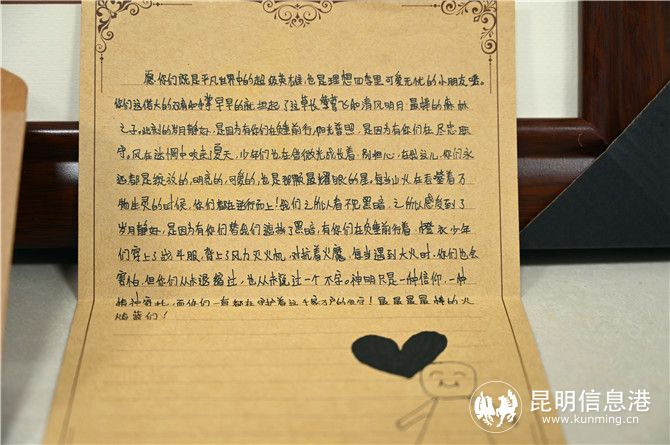 愿你们既是平凡世界中的超级英雄,也是理想四季里可爱无忧的小朋友噻。
你们这偌大的 早早的就担起了这草长莺飞和清风明月 最棒的森林
之子。此刻的岁月静好,是因为有你们在负重前行,阳光普照,是因为有你们在尽忠职
守。风在这烟中吹来了夏天,少年们也在借微光成长着,别担心,在 这儿,你们永
远都是绽放的,明亮的,可爱的,也是我眼里最耀眼的星,每当山火在吞噬着万
物生灵的时候,你们都在逆行而上!我们之所以看不见黑暗,之所以感受到了
岁月静好,是因为有你们替我们遮挡了黑暗,有你们在负重前行着 少年
们穿上了战斗服,背上了风力灭火机,对抗着火魔,每当遇到大火时,你们也会
害怕,但你们从未退缩过,也从未说过一个不字。神明只是一种信仰,一种
而你们一直都在守护着这 最最最最棒的火
焰蓝们!
昆明信息港
www.kunming.cn